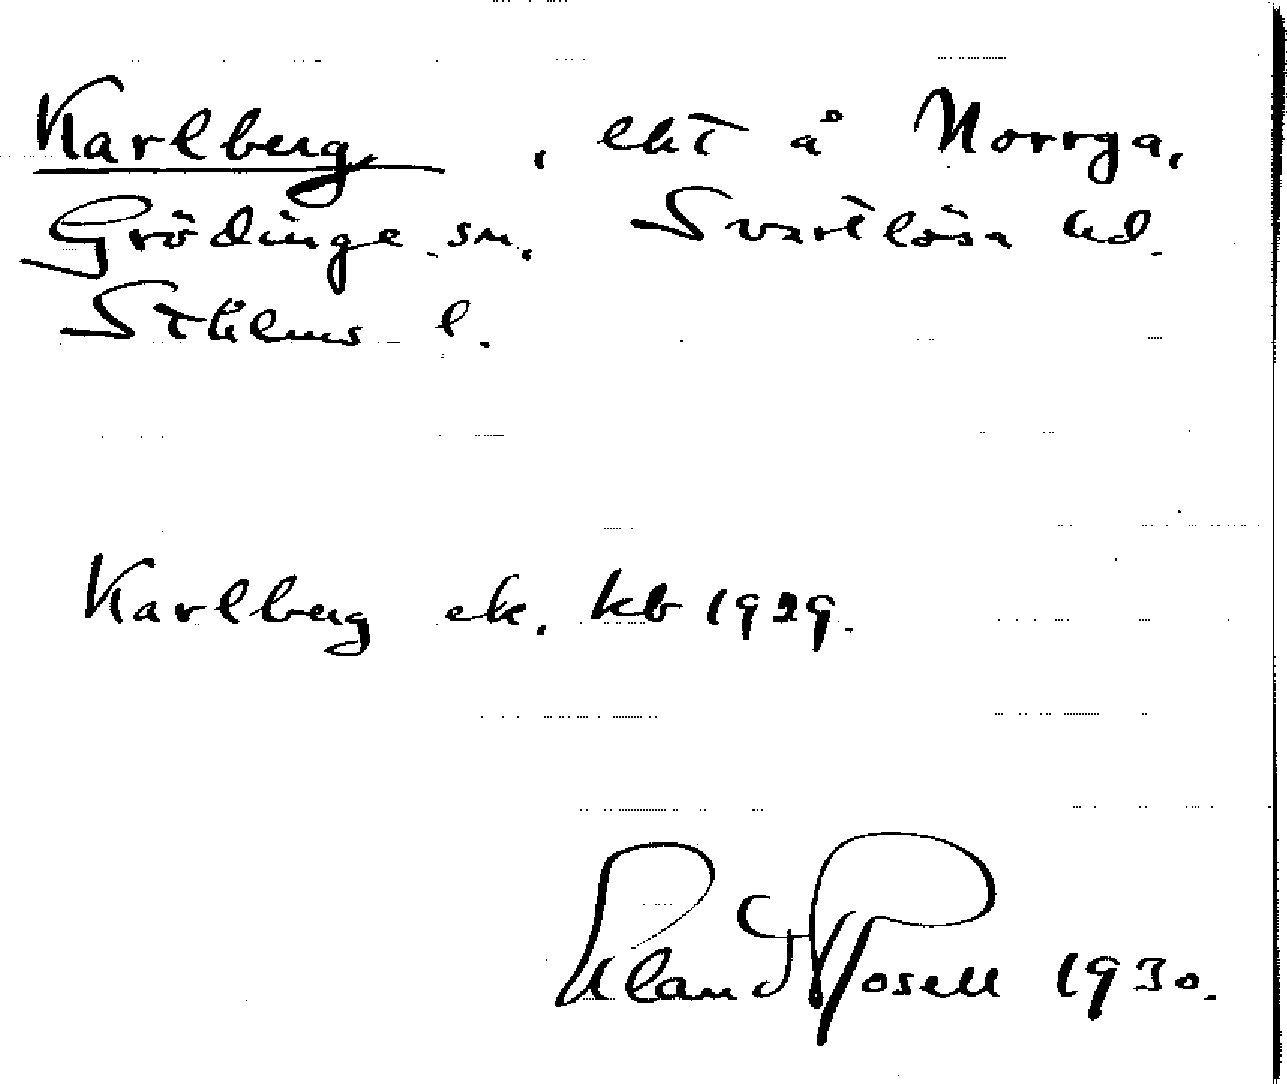 Karlberg, lht å Norrga,
Grödinge sn. Svartlösa hd.
Sthlms l.
Karlberg ek. kb 1929.
Rosell 1930.